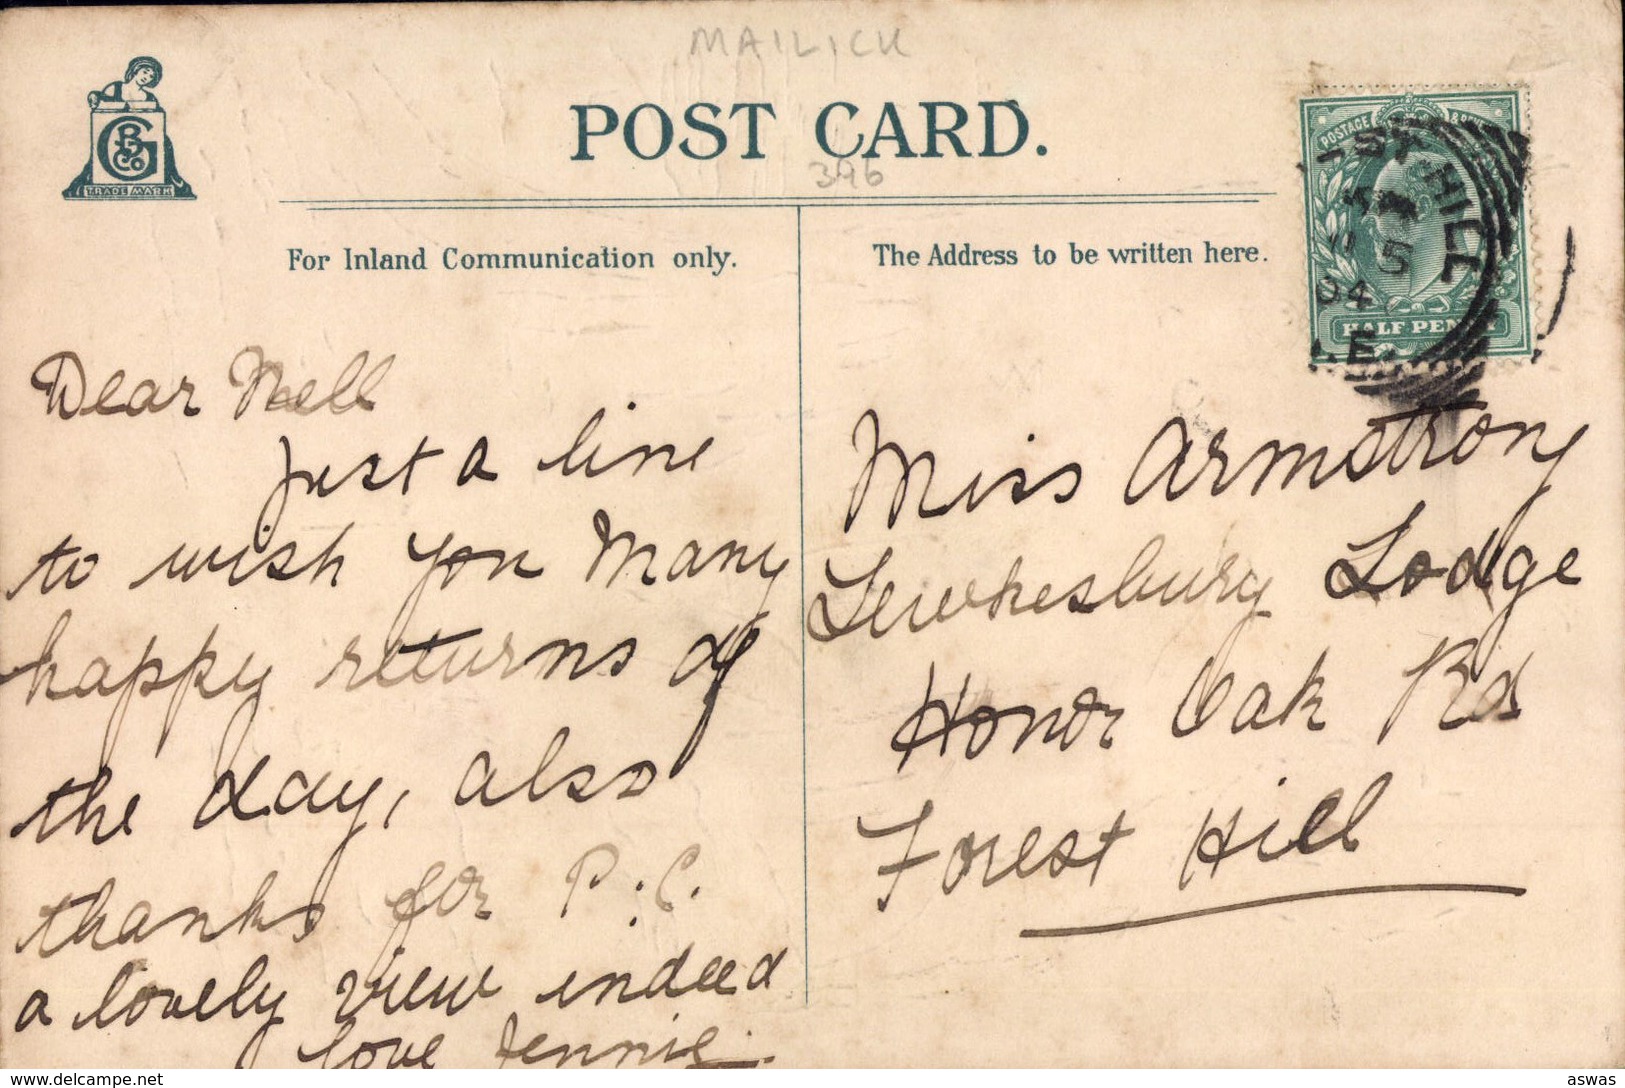 MAILICK
POST CARD.
396
G B & Co
TRADE MARK
For Inland Communication only.
The Address to be written here.
POSTAGE & REVENUE
HALF PENNY
HILL
5
04
E.
Dear Nell
Just a line
to wish you Many
happy returns of
the day, also
thanks for P.C.
a lovely view indeed
love Jennie.
Miss Armstrong
Tewkesbury Lodge
Honor Oak Rd
Forest Hill
Delcampe.net
aswas